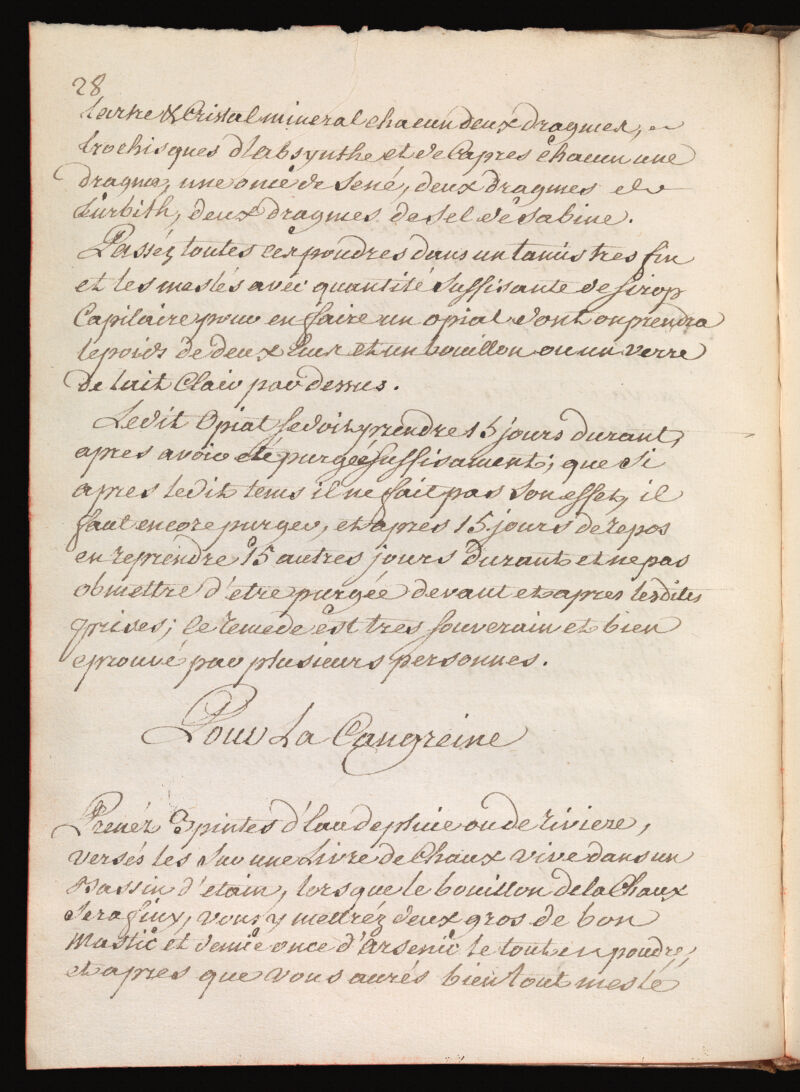 28
tartre & Cristal mineral chacun deux dragmes,
trochisques d'labsynthe et de Capres chacun une
dragme, une once de sené, deux dragmes de
turbith, deux dragmes de sel de sabine.
Passéz toutes ces poudres dans un tamis tres fin
et les meslés avec quantité suffisante de sirop
Capilaire pour en faire un opiat dont on prendra
le poids de deux Ecus et un bouillon ou un verre
de lait Clair par dessus.
Ledit Opiat se doit prendre 15 jours durant,
apres avoir eté purgée suffisament; que si
apres ledit tems il ne fait pas son effet, il
faut encore purger, et apres 15 jours de repos
en reprendre 15 autres jours durant et ne pas
obmettre d'etre purgée devant et apres lesdites
prises; ce remede est tres souverain et bien
eprouvé par plusieurs personnes.
Pour La Cangreine
Prenéz 3 pintes d'Eau de pluie ou de riviere,
versés les sur une Livre de Chaux vive dans un
Bassin d'etain, lorsque le bouillon de la Chaux
sera finy, vous y mettréz deux gros de bon
Mastic et demie once d'arsenic le tout en poudre,
et apres que vous aurés bien tout meslé